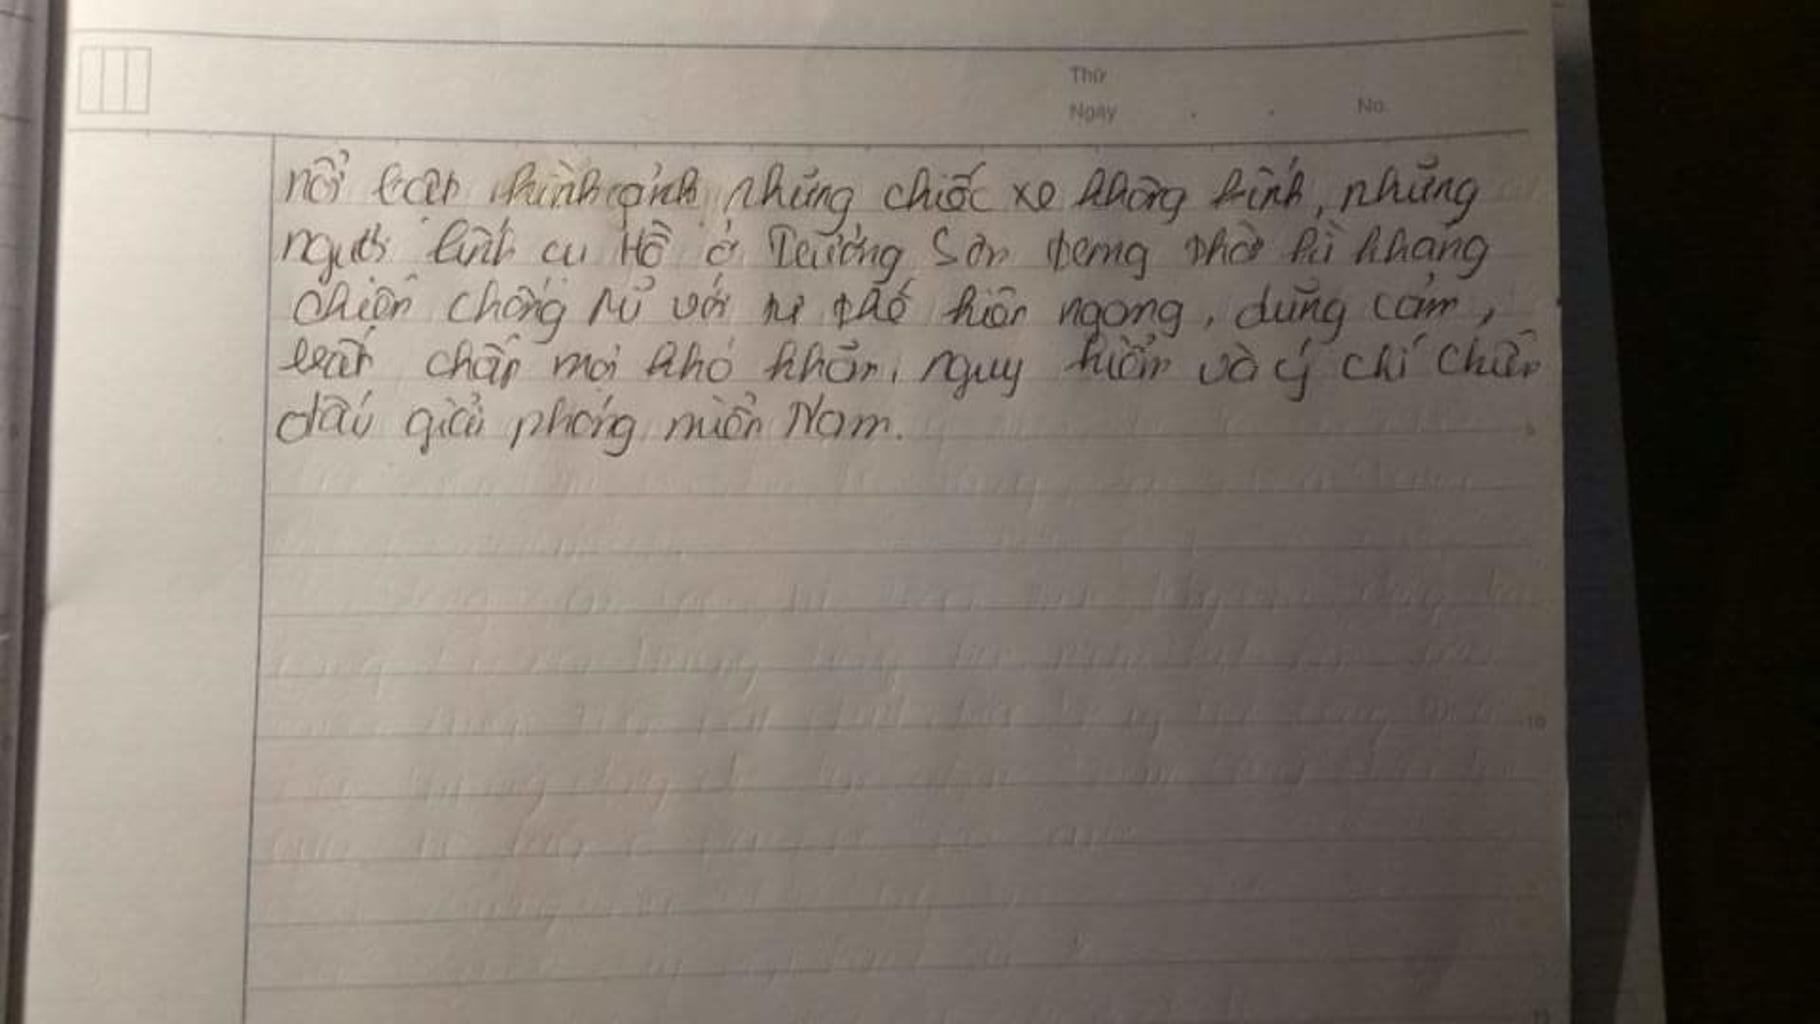 Thứ
Ngày No.
nổi bật hình ảnh những chiếc xe không kính, những
người lính cụ Hồ ở Trường Sơn trong thời kì kháng
chiến chống Mĩ với tư thế hiên ngang, dũng cảm,
chấp mọi khó khăn, nguy hiểm và ý chí chiến
đấu giải phóng miền Nam.